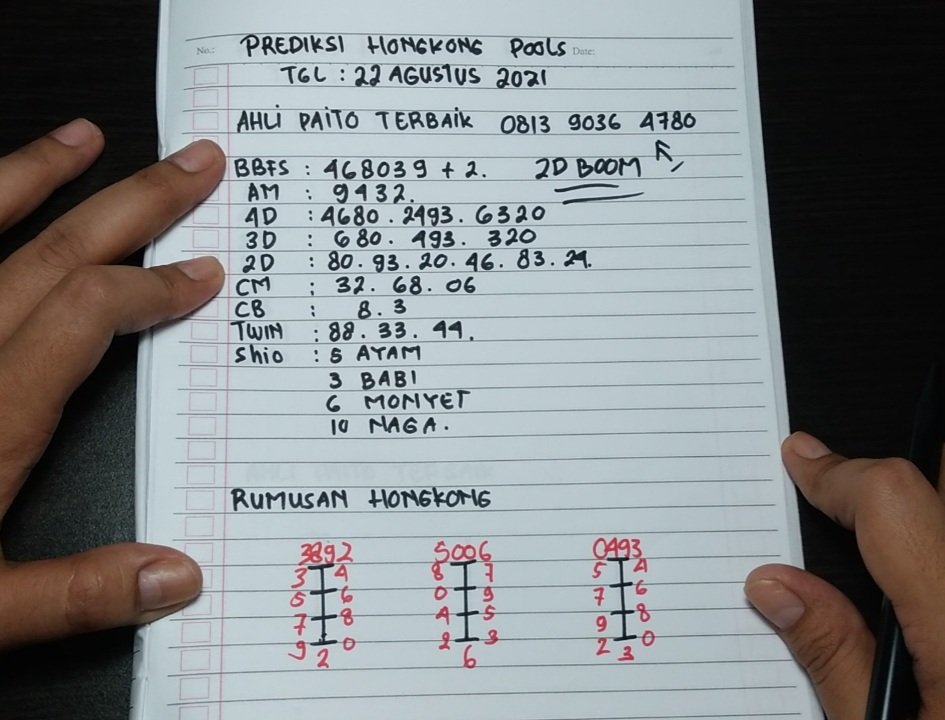 No.: PREDIKSI HONGKONG POOLS Date:
TGL : 22 AGUSTUS 2021
AHLI PAITO TERBAIK 0813 9036 4780
BBFS : 468039 + 2. 2D BOOM
AM : 9432.
4D : 4680 . 2493 . 6320
3D : 680 . 493 . 320
2D : 80 . 93 . 20 . 46 . 83 . 24.
CM : 32 . 68 . 06
CB : 8 . 3
TWIN : 88 . 33 . 44 .
Shio : 5 AYAM
3 BABI
6 MONYET
10 NAGA .
RUMUSAN HONGKONG
3892 5006 0493
3 4 8 7 5 4
5 6 0 9 7 6
7 8 4 5 9 8
9 0 2 3 2 0
2 6 3